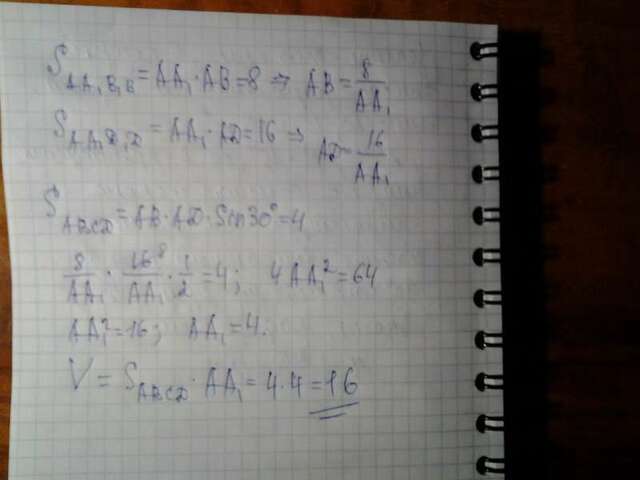 S_AA₁B₁B = AA₁ · AB = 8 ⇒ AB = 8/AA₁
S_AA₁D₁D = AA₁ · AD = 16 ⇒ AD = 16/AA₁
S_ABCD = AB · AD · Sin30° = 4
8/AA₁ · 16⁸/AA₁ · 1/2 = 4; 4AA₁² = 64
AA₁² = 16; AA₁ = 4.
V = S_ABCD · AA₁ = 4.4 = 16